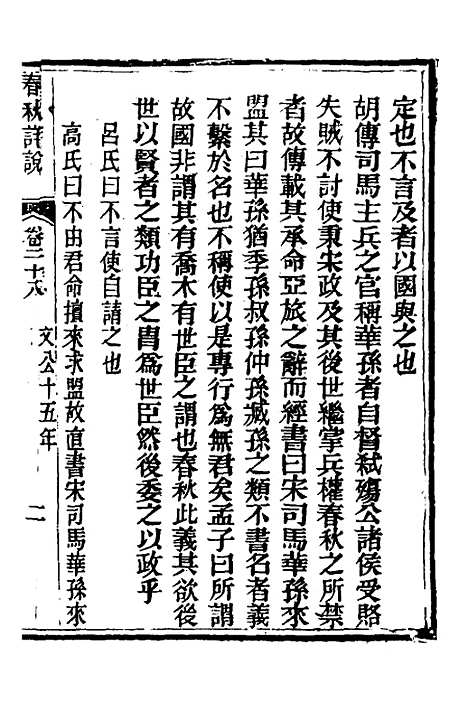 定也不言及者以國與之也
胡傳司馬主兵之官稱華孫者自督弒殤公諸侯受賂
失賊不討使秉宋政及其後世繼掌兵權春秋之所禁
者故傳載其承命亞旅之辭而經書曰宋司馬華孫來
盟其曰華孫猶季孫叔孫仲孫臧孫之類不書名者義
不繫於名也不稱使以是專行爲無君矣孟子曰所謂
故國非謂其有喬木有世臣之謂也春秋此義其欲後
世以賢者之類功臣之胄爲世臣然後委之以政乎
呂氏曰不言使自請之也
高氏曰不由君命擅來求盟故直書宋司馬華孫來
春秋詳說
卷二十八
文公十五年
二